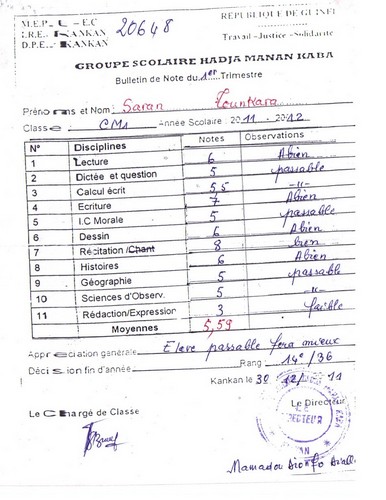 M.E.P. L - E.C
I.R.E. KANKAN
D.P.E. KANKAN
20648
REPUBLIQUE DE GUINEE
Travail -Justice -Solidarité
GROUPE SCOLAIRE HADJA MANAN KABA
Bulletin de Note du 1er Trimestre
Prénoms et Nom: Saran Tounkara
Classe: CM1 Année Scolaire: 2011 - 2012
N° Disciplines Notes Observations
1 Lecture 6 Abien
2 Dictée et question 5 passable
3 Calcul écrit 5,5 -//-
4 Ecriture 7 Abien
5 I.C Morale 5 passable
6 Dessin 6 Abien
7 Récitation /Chant 8 bien
8 Histoires 6 Abien
9 Géographie 5 passable
10 Sciences d'Observ. 5 -//-
11 Rédaction/Expression 3 faible
Moyennes 5,59
Appréciation générale Elève passable fera mieux
Rang : 14e/36
Décision fin d'année
Kankan le 30 12 11
Le Chargé de Classe
Le Directeur
Mamadou